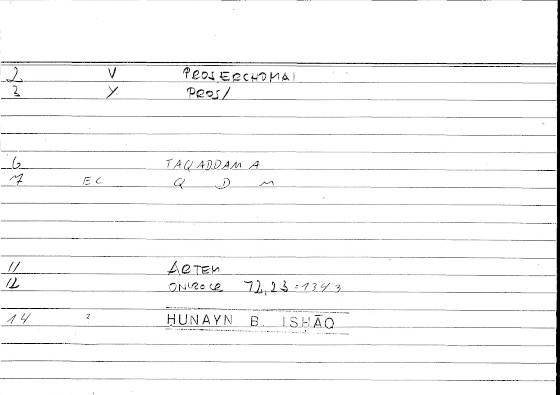 2 V PROSERCHOMAI
3 Y PROS/
6 TAQADDAMA
7 EC Q D M
11 ARTEM
12 ONIROCR 72,23=1343
14 2 HUNAYN B. ISḤĀQ